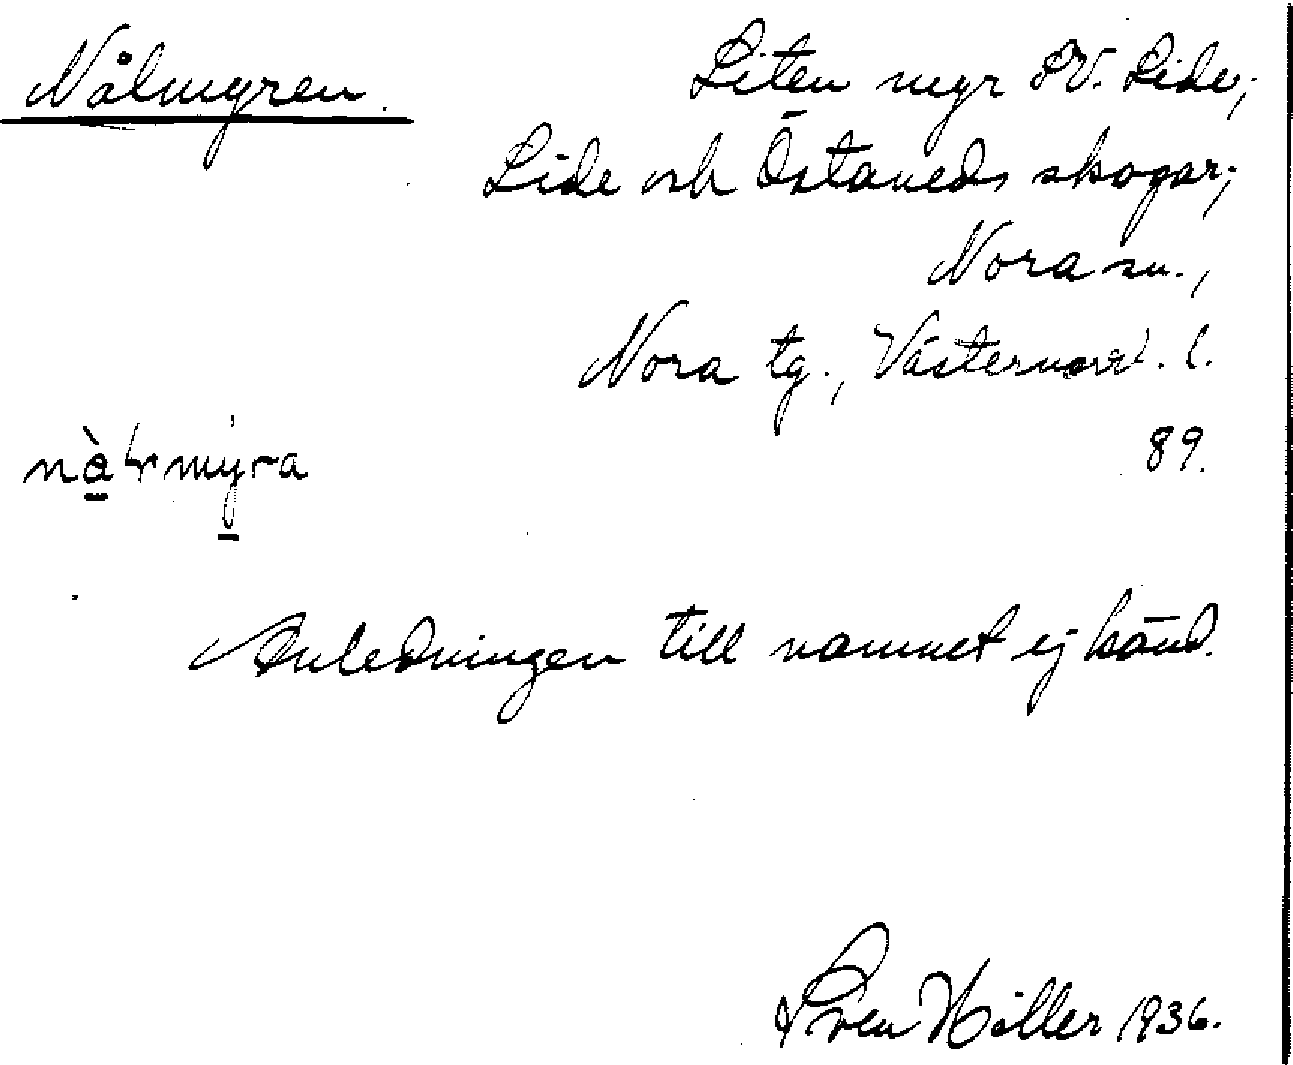 Nålmyren.
Liten myr SV. Lide;
Lide och Östaneds skogar;
Nora sn.,
Nora tg., Västernorrl. l.
89.
Anledningen till namnet ej känd.
Sven Höller 1936.